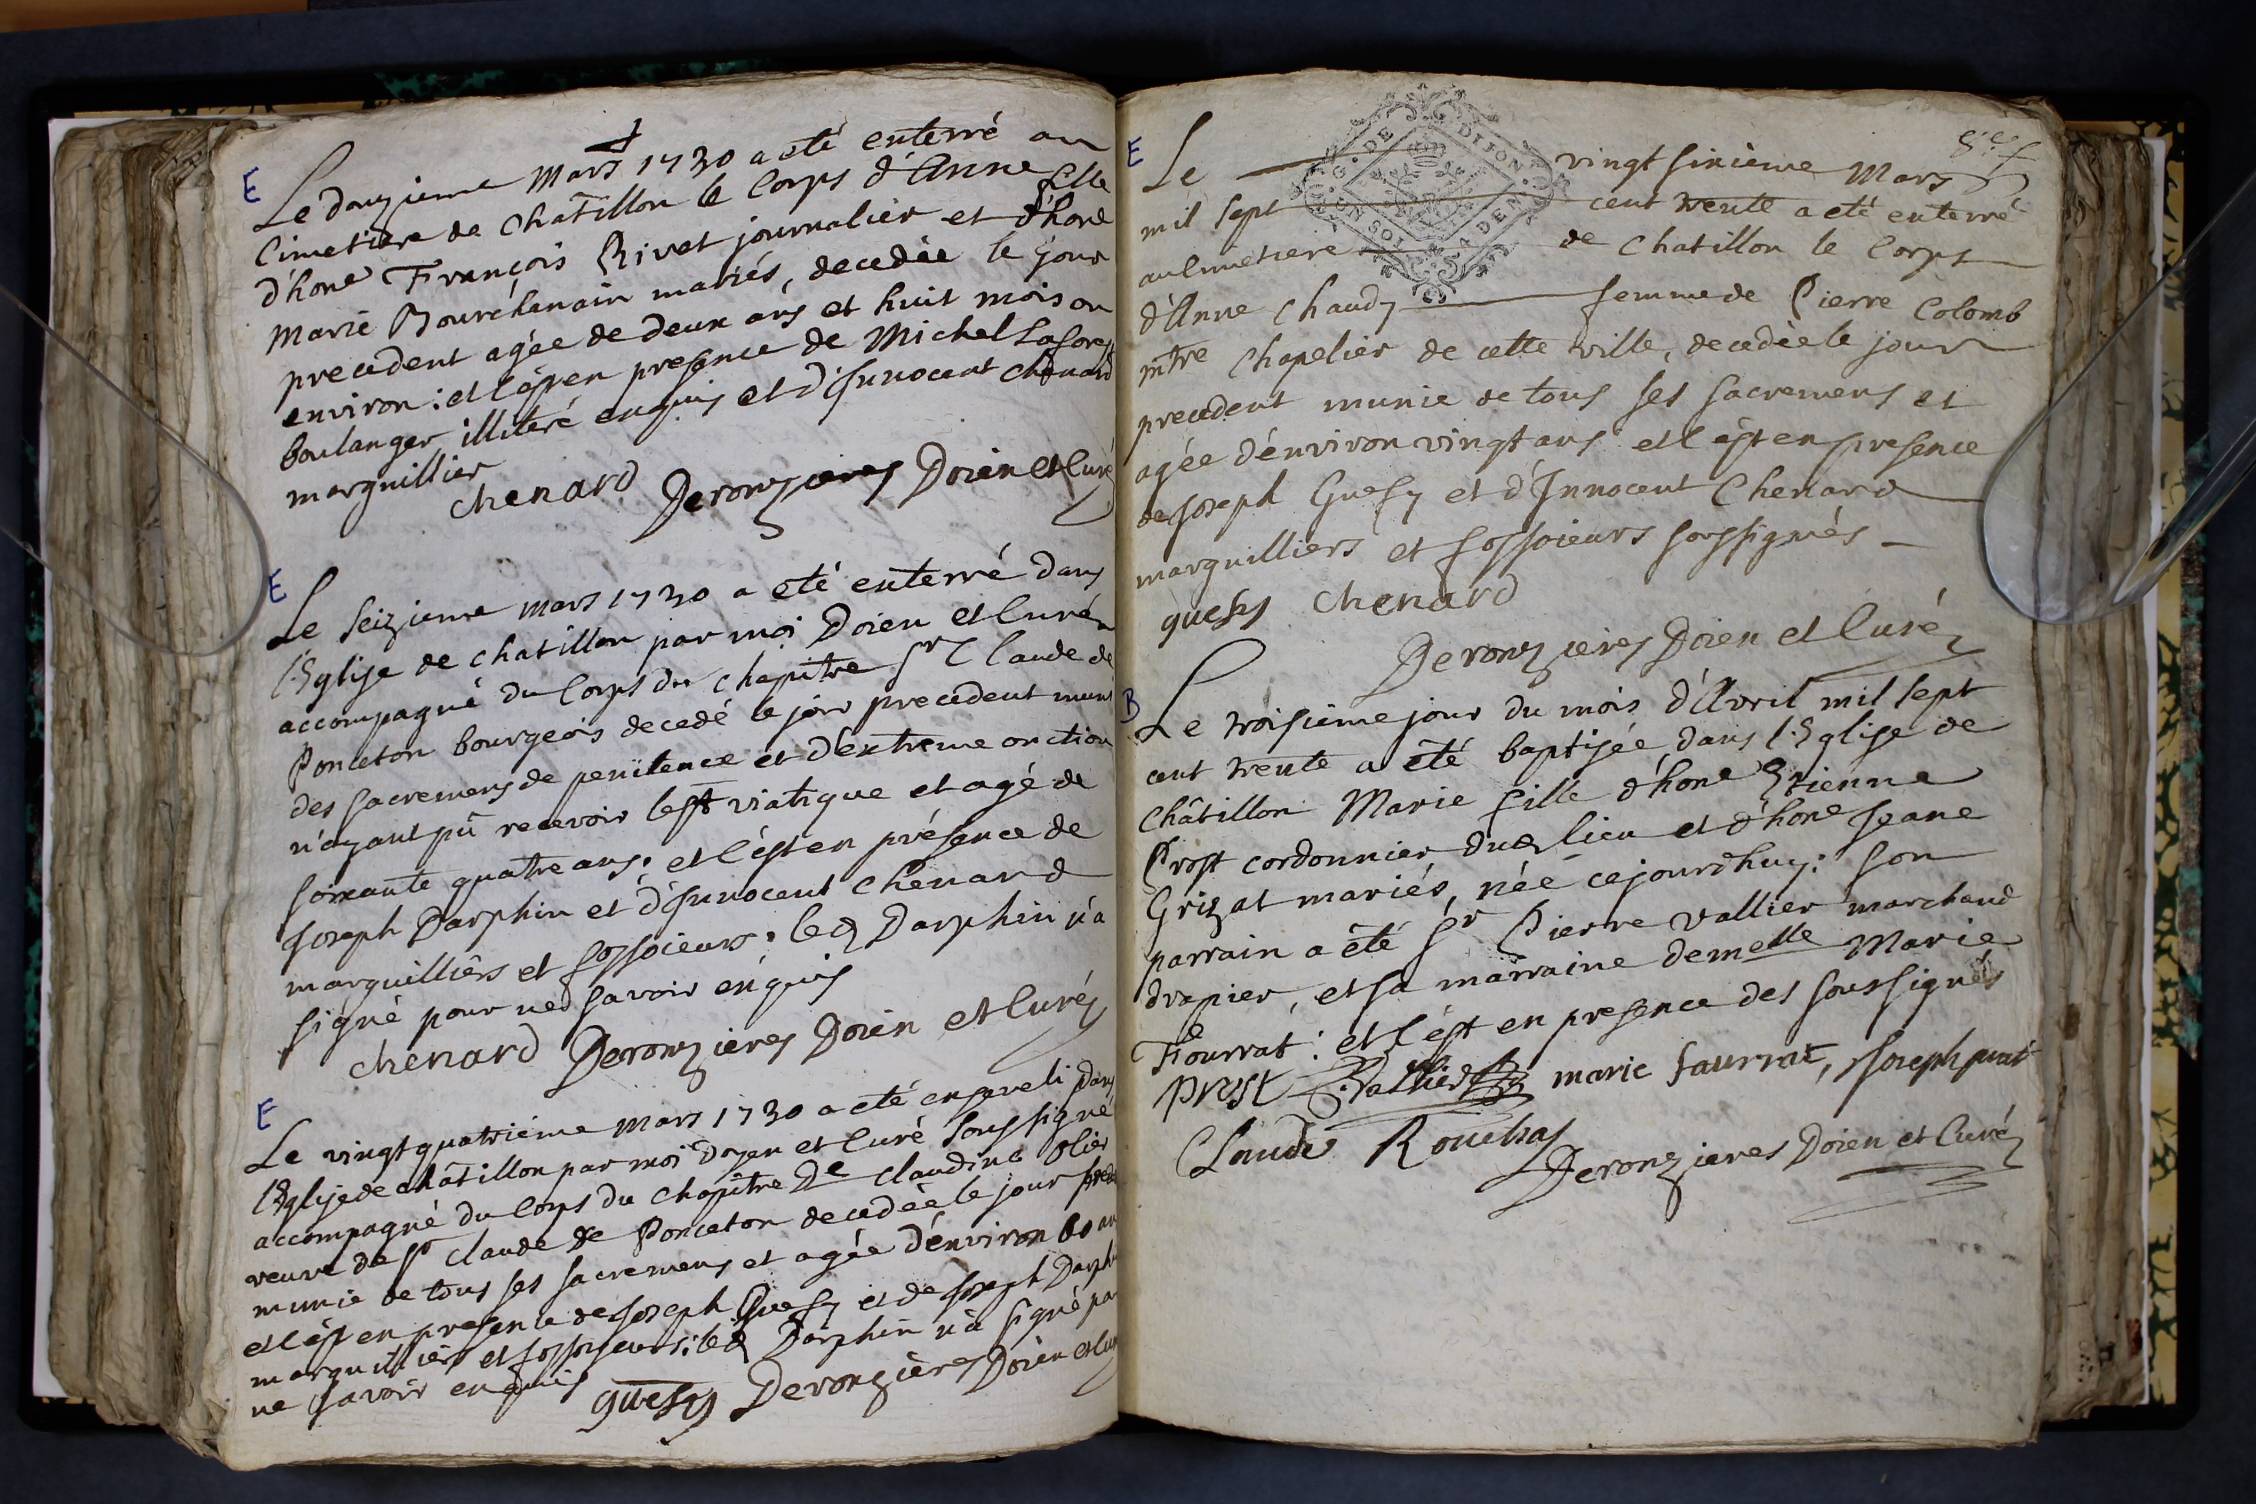 E
Le douzieme Mars 1730 a eté enterré au
Cimetiere de Chatillon le Corps d'Anne fille
d'hone François Rivet journalier et d'hone
Marie Bourchanain mariés, decedée le jour
precedent agée de deux ans et huit mois ou
environ: et c'est en presence de Michel
boulanger illiteré enquis et d'Innocent Chenard
marguillier
Chenard Deronzieres Doien et Curé
E
Le Seizieme mars 1730 a eté enterré dans
l'Eglise de chatillon par moi Doien et Curé
accompagné du Corps du chapitre Sr Claude de
Ponceton bourgeois decedé le jour precedent muni
des sacremens de penitence et d'extreme onction
n'ayant pû recevoir le st viatique et agé de
soixante quatre ans: et c'est en présence de
Joseph Darphin et d'Innocent Chenard
marguilliers et fossoieurs: led Darphin n'a
signé pour ne savoir enquis
Chenard Deronzieres Doien et Curé
E
Le vingt quatrieme mars 1730 a eté enseveli dans
l'Eglise de chatillon par moi Doyen et Curé soussigné
accompagné du Corps du chapitre De Claudine Olier
veuve de Sr Claude de Ponceton decedée le jour
munie de tous ses sacremens et agée d'environ 60 an
et c'est en presence de Joseph Guesy et de Joseph Darph
marguilliers et fossoyeurs: led Darphin n'a signé pa
ne savoir enquis
guesy Deronzieres Doien et Cu
E
Le vingt sixieme Mars
G. DE DIJON. UN SOL 4 DEN
mil sept cent trente a eté enterré
au Cimetiere de Chatillon le Corps
d'Anne Chaudy femme de Pierre Colomb
mtre Chapelier de cette ville, decedée le jour
precedent munie de tous ses sacremens et
agée d'environ vingt ans et c'est en presence
de Joseph Guesy et d'Innocent Chenard
marguilliers et fossoieurs soussignés
guesy Chenard
Deronzieres Doien et Curé
B
Le troisieme jour du mois d'Avril mil sept
cent trente a été baptisée dans l'Eglise de
Châtillon Marie fille d'hone Etienne
Prost cordonnier dud lieu et d'hone Jeane
Grizat mariés, née cejourd'huy: son
parrain a été Sr Pierre Vallier marchand
drapier, et sa marraine demelle Marie
Fourrat: et c'est en presence des soussignés
Prost Vallier marie fourrat, Joseph
Claude Rouchas
Deronzieres Doien et Curé